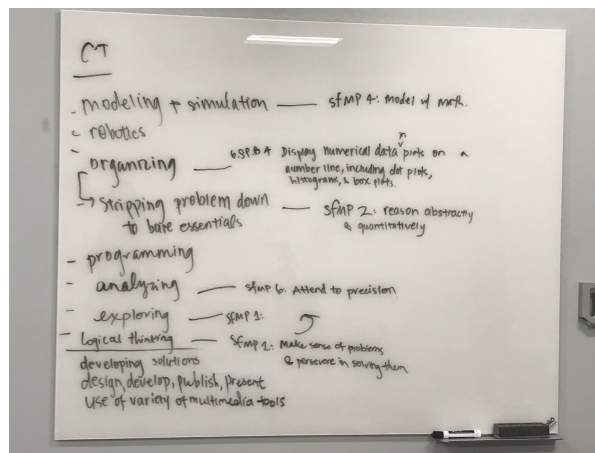 CT
- modeling + simulation — SfMP 4: Model w/ math.
- robotics
- organizing — 6.SP.B.4 Display numerical data in plots on a
number line, including dot plots,
histograms, & box plots.
→ Stripping problem down
to bare essentials — SfMP 2: reason abstractly
& quantitatively
- programming
- analyzing — SfMP 6: Attend to precision
- exploring — SfMP 1:
- Logical thinking — SfMP 1: Make sense of problems
& persevere in solving them
developing solutions
design, develop, publish, present
use of variety of multimedia tools